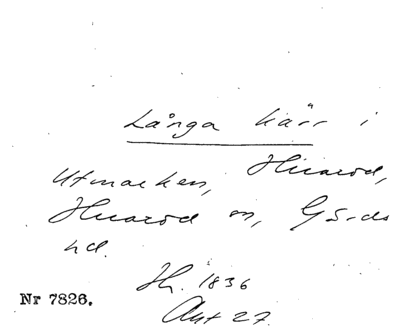 Långa kärr i
Utmarken, Huaröd,
Huaröd sn, Gärds
hd.
Sh. 1836
Akt 27
Nr 7826.